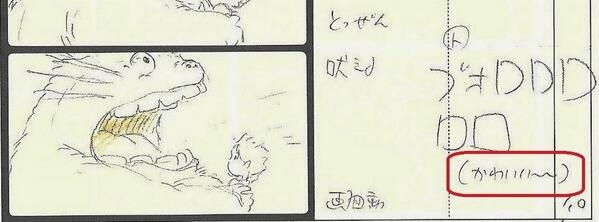 とつぜん
ト
吠える ブオロロロ
ロロ
(かわいい〜)
画面動